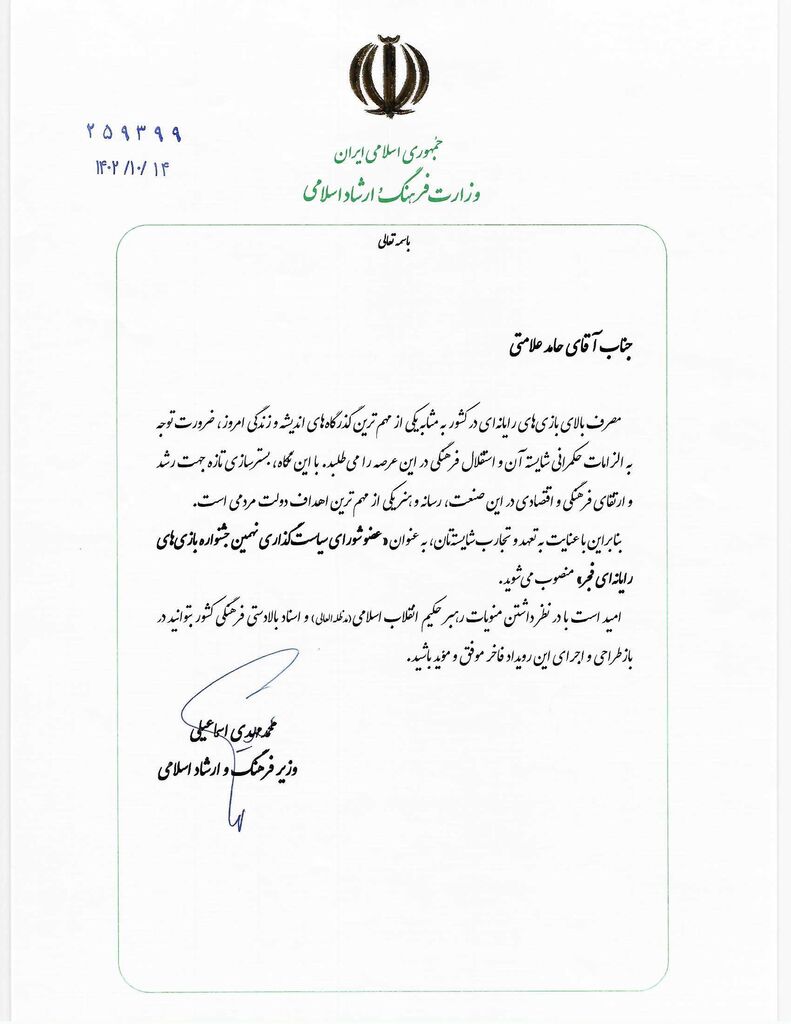 ۲۵۹۳۹۹
۱۴۰۲/۱۰/۱۴
جمهوری اسلامی ایران
وزارت فرهنگ و ارشاد اسلامی
باسمه تعالی
جناب آقای حامد علامتی
مصرف بالای بازی‌های رایانه‌ای در کشور به مثابه یکی از مهم ترین گذرگاه‌های اندیشه و زندگی امروز، ضرورت توجه
به الزامات حکمرانی شایسته آن و استقلال فرهنگی در این عرصه را می طلبد. با این نگاه، بسترسازی تازه جهت رشد
و ارتقای فرهنگی و اقتصادی در این صنعت، رسانه و هنر یکی از مهم ترین اهداف دولت مردمی است.
بنابراین با عنایت به تعهد و تجارب شایسته‌تان، به عنوان «عضو شورای سیاست گذاری نهمین جشنواره بازی‌های
رایانه‌ای فجر» منصوب می‌شوید.
امید است با در نظر داشتن منویات رهبر حکیم انقلاب اسلامی (مدظله العالی) و اسناد بالادستی فرهنگی کشور بتوانید در
بازطراحی و اجرای این رویداد فاخر موفق و مؤید باشید.
محمد مهدی اسماعیلی
وزیر فرهنگ و ارشاد اسلامی